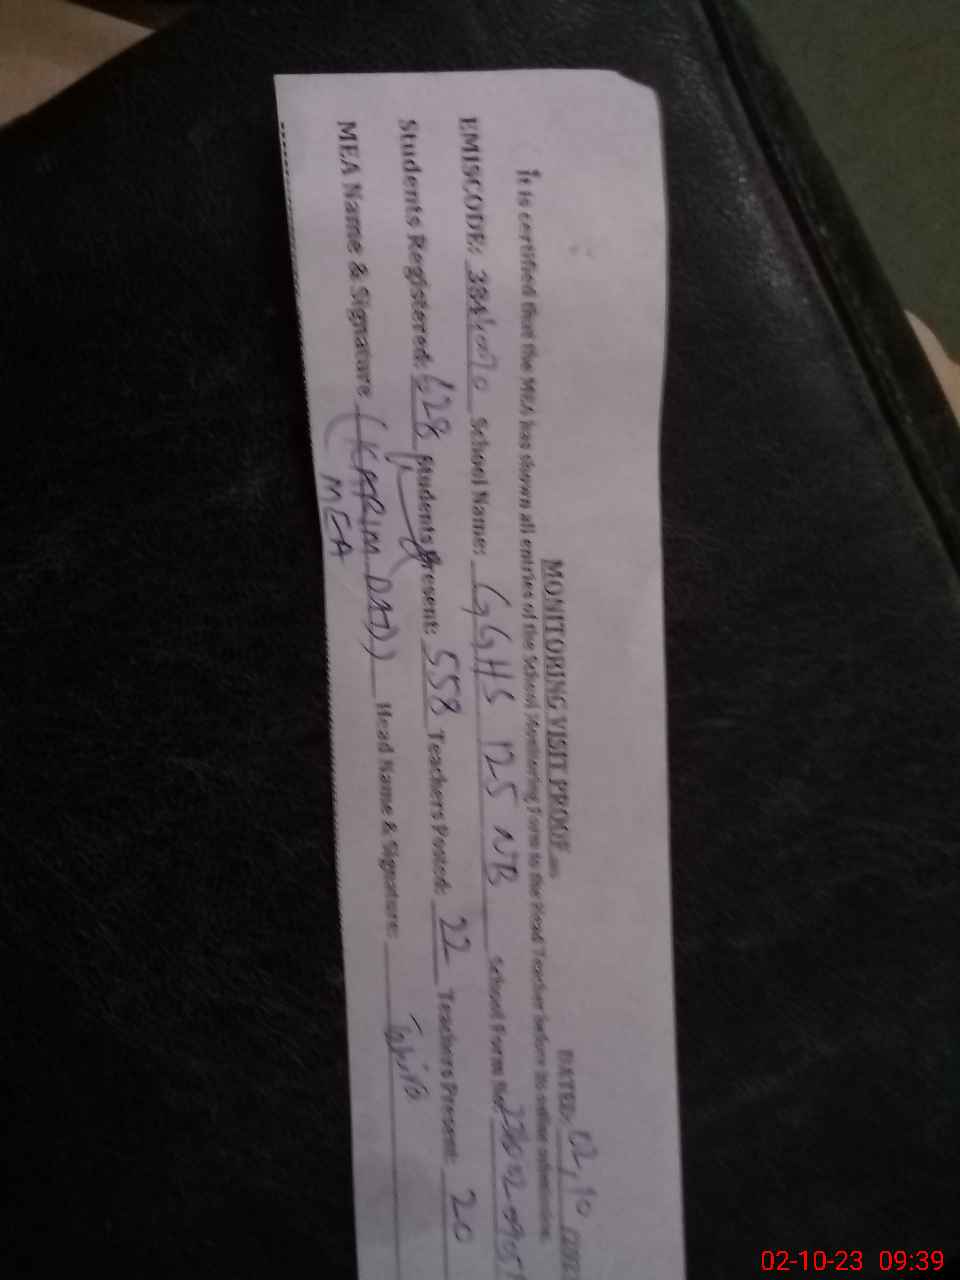 MONITORING VISIT PROOF
DATED: 02,10
It is certified that the MEA has shown all entries of the School Monitoring Form to the Head Teacher before its online submission.
EMISCODE: School Name: GGHS 125 NB School Form No:
Students Registered: 628 Students Present: 558 Teachers Posted: 22 Teachers Present: 20
MEA Name & Signature (KARIM DAD) Head Name & Signature:
MEA
02-10-23 09:39